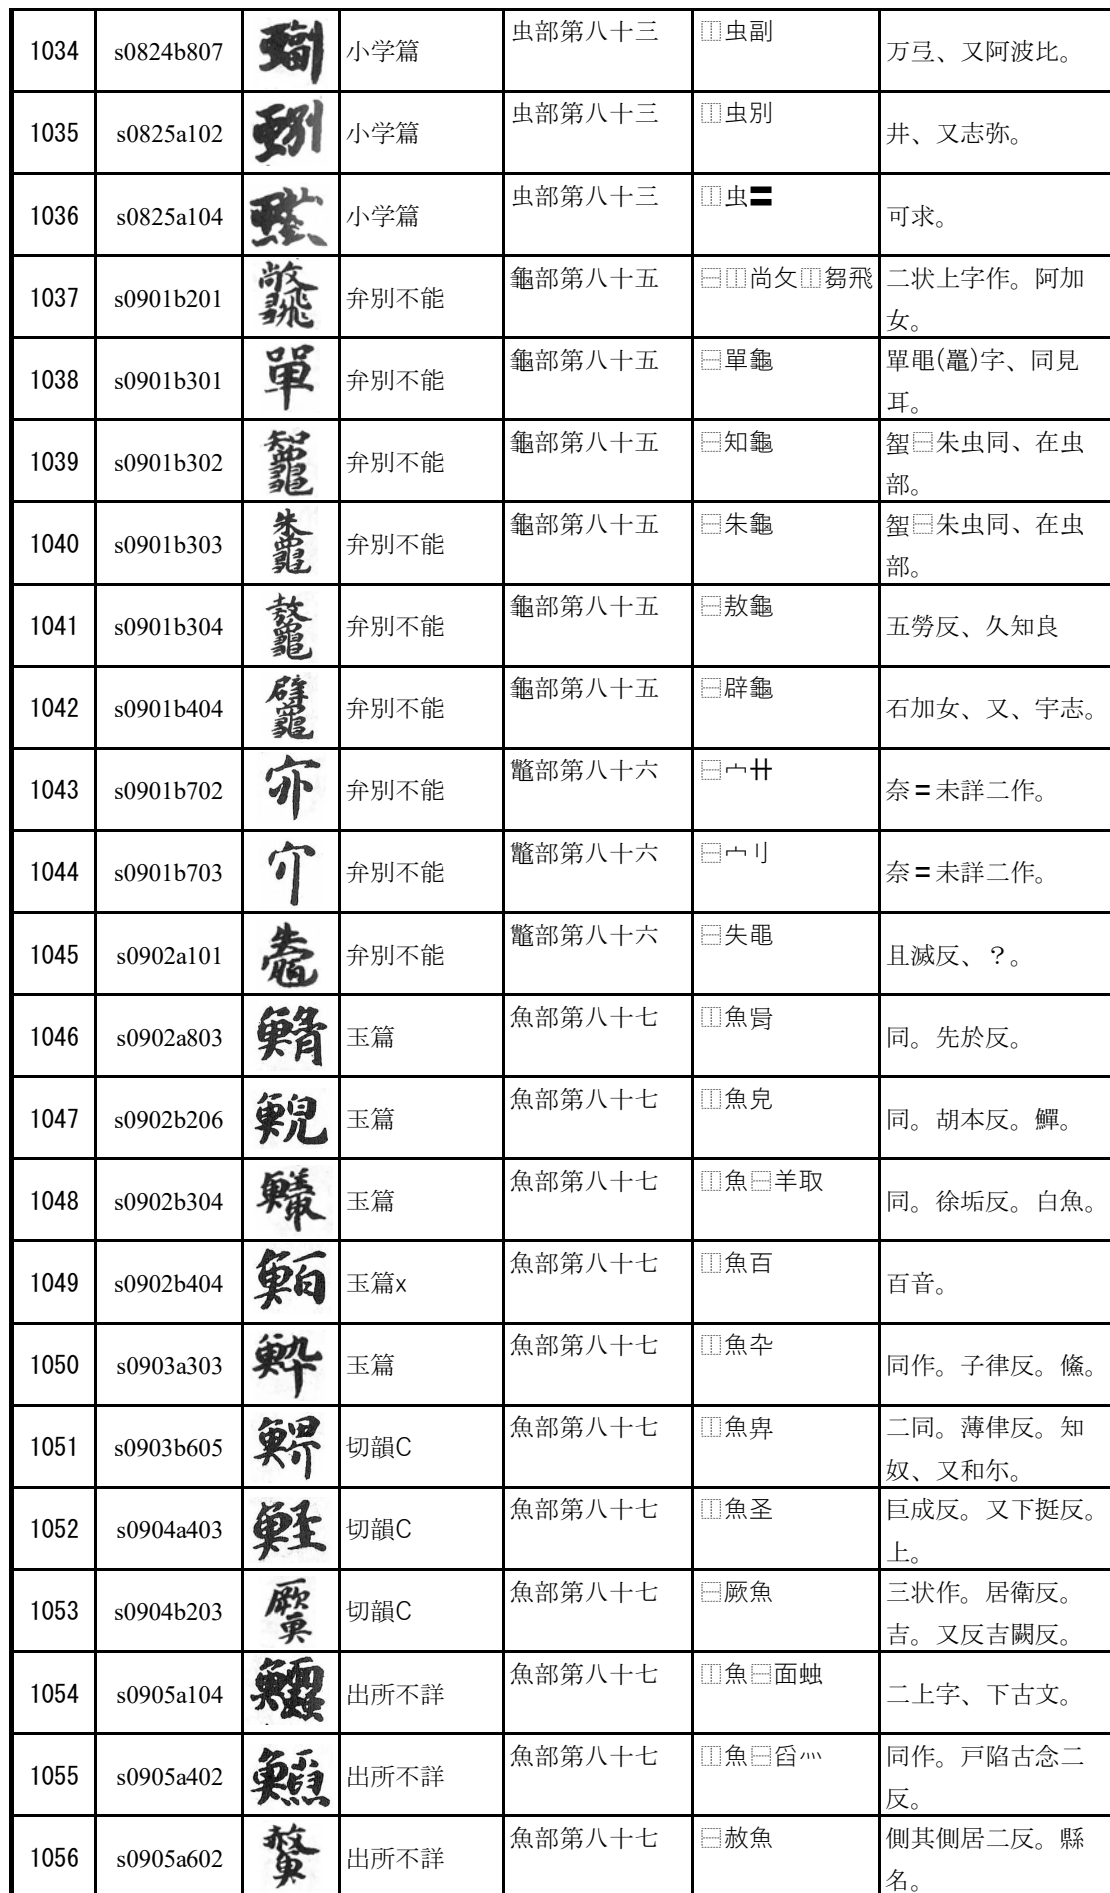 1034 s0824b807 小学篇 虫部第八十三 ⿰虫副 万弖、又阿波比。
1035 s0825a102 小学篇 虫部第八十三 ⿰虫別 井、又志弥。
1036 s0825a104 小学篇 虫部第八十三 ⿰虫〓 可求。
1037 s0901b201 弁別不能 龜部第八十五 ⿱⿰尚攵⿰芻飛 二状上字作。阿加
女。
1038 s0901b301 弁別不能 龜部第八十五 ⿱單龜 單黽(鼉)字、同見
耳。
1039 s0901b302 弁別不能 龜部第八十五 ⿱知龜 蜘⿱朱虫同、在虫
部。
1040 s0901b303 弁別不能 龜部第八十五 ⿱朱龜 蜘⿱朱虫同、在虫
部。
1041 s0901b304 弁別不能 龜部第八十五 ⿱敖龜 五勞反、久知良
1042 s0901b404 弁別不能 龜部第八十五 ⿱辟龜 石加女、又、宇志。
1043 s0901b702 弁別不能 鼈部第八十六 ⿱宀卝 奈〓未詳二作。
1044 s0901b703 弁別不能 鼈部第八十六 ⿱宀刂 奈〓未詳二作。
1045 s0902a101 弁別不能 鼈部第八十六 ⿱失黽 且滅反、？。
1046 s0902a803 玉篇 魚部第八十七 ⿰魚胥 同。先於反。
1047 s0902b206 玉篇 魚部第八十七 ⿰魚皃 同。胡本反。鱓。
1048 s0902b304 玉篇 魚部第八十七 ⿰魚⿱羊取 同。徐垢反。白魚。
1049 s0902b404 玉篇x 魚部第八十七 ⿰魚百 百音。
1050 s0903a303 玉篇 魚部第八十七 ⿰魚卆 同作。子律反。鯈。
1051 s0903b605 切韻C 魚部第八十七 ⿰魚畀 二同。薄侓反。知
奴、又和尓。
1052 s0904a403 切韻C 魚部第八十七 ⿰魚圣 巨成反。又下挺反。
上。
1053 s0904b203 切韻C 魚部第八十七 ⿱厥魚 三状作。居衛反。
吉。又反吉闕反。
1054 s0905a104 出所不詳 魚部第八十七 ⿰魚⿱面䖵 二上字、下古文。
1055 s0905a402 出所不詳 魚部第八十七 ⿰魚⿱臽灬 同作。戸陷古念二
反。
1056 s0905a602 出所不詳 魚部第八十七 ⿱赦魚 側其側居二反。縣
名。